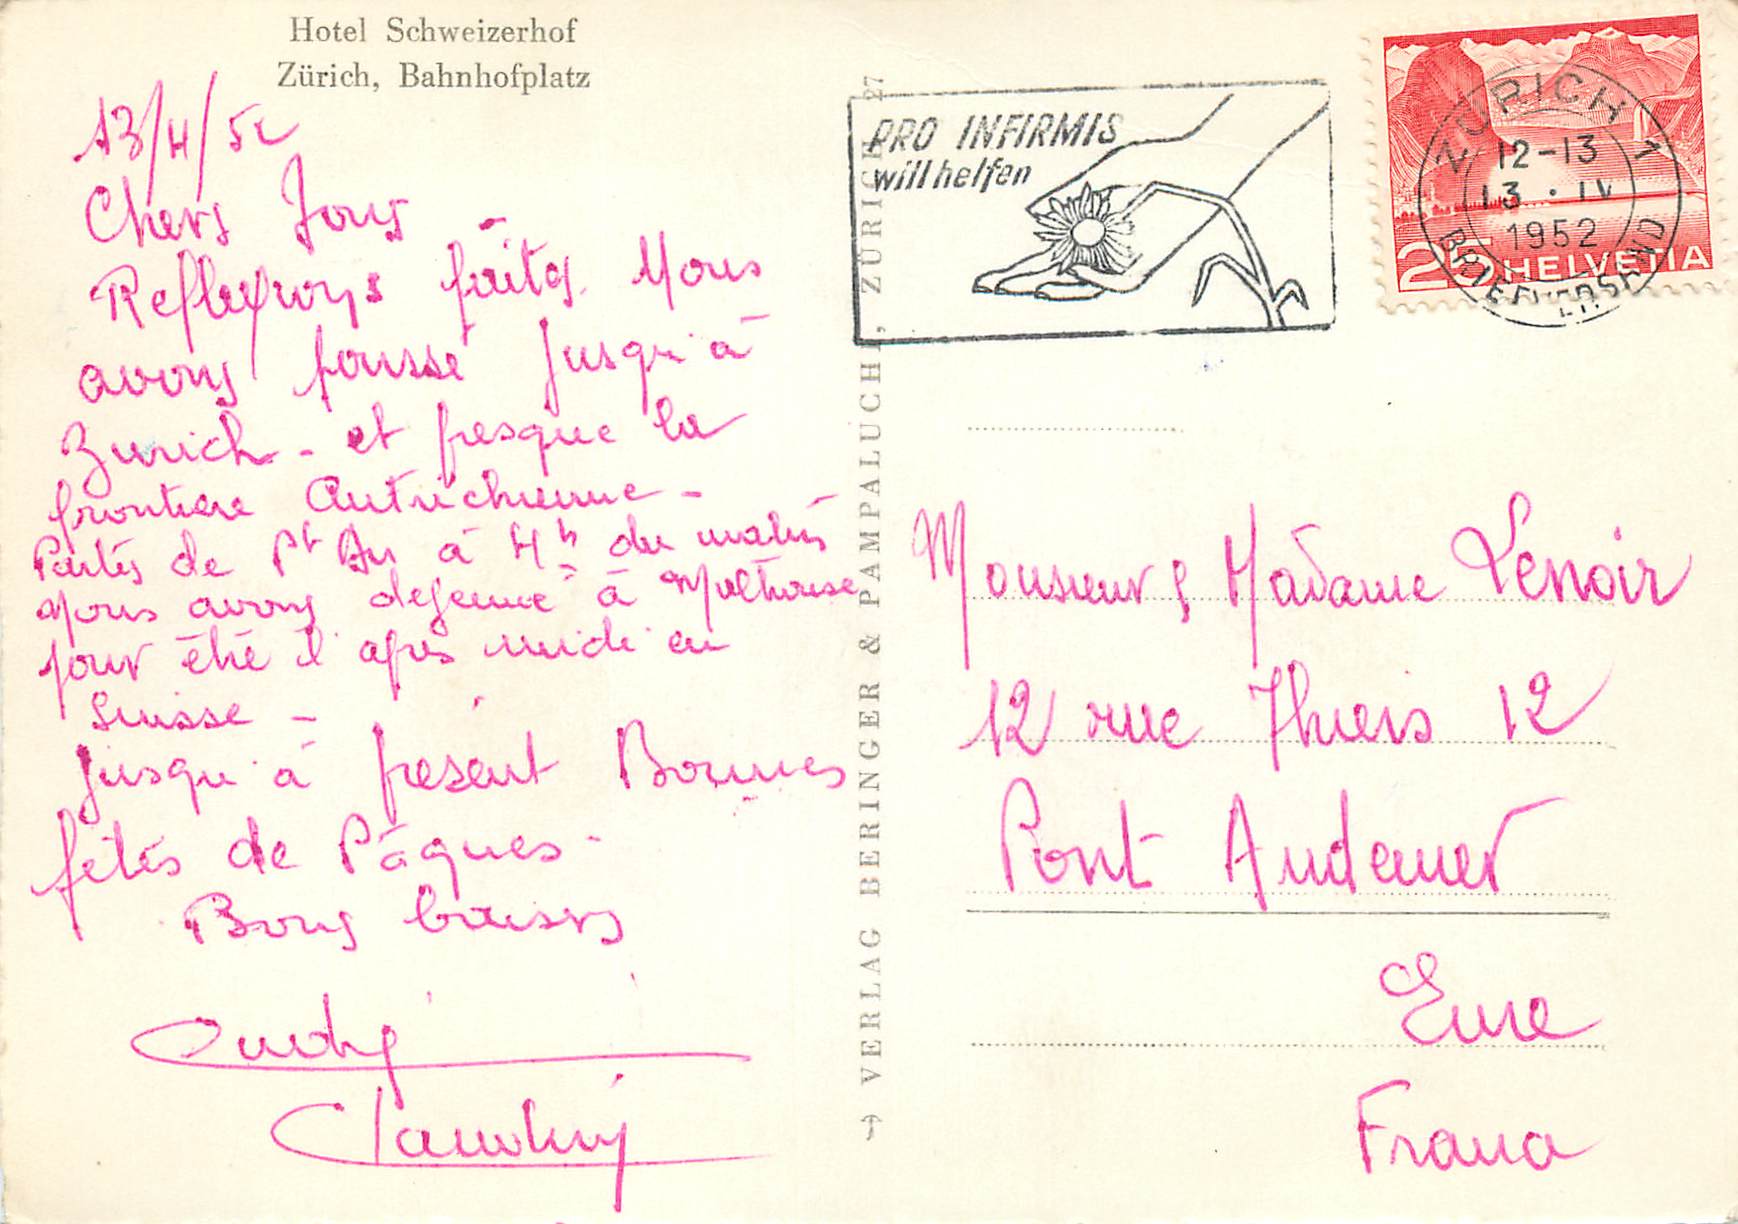 Hotel Schweizerhof
Zürich, Bahnhofplatz
13/4/52
Chers Tous
Reflexions faites Nous
avons poussé jusqu'à
Zurich - et presque la
frontiere Autrichienne -
Partis de Pt Au à 4h du matin
Nous avons dejeuné à Mulhouse
pour été l'après midi en
Suisse -
jusqu'à présent Bonnes
fêtes de Pâques -
Bons baisers
André
PRO INFIRMIS
will helfen
ZÜRICH 1
12-13
13.IV
1952
BRIEFVERSAND
25 HELVETIA
VERLAG BERINGER & PAMPALUCHI, ZÜRICH 27
Monsieur & Madame Lenoir
12 rue Thiers 12
Pont Audemer
Eure
France